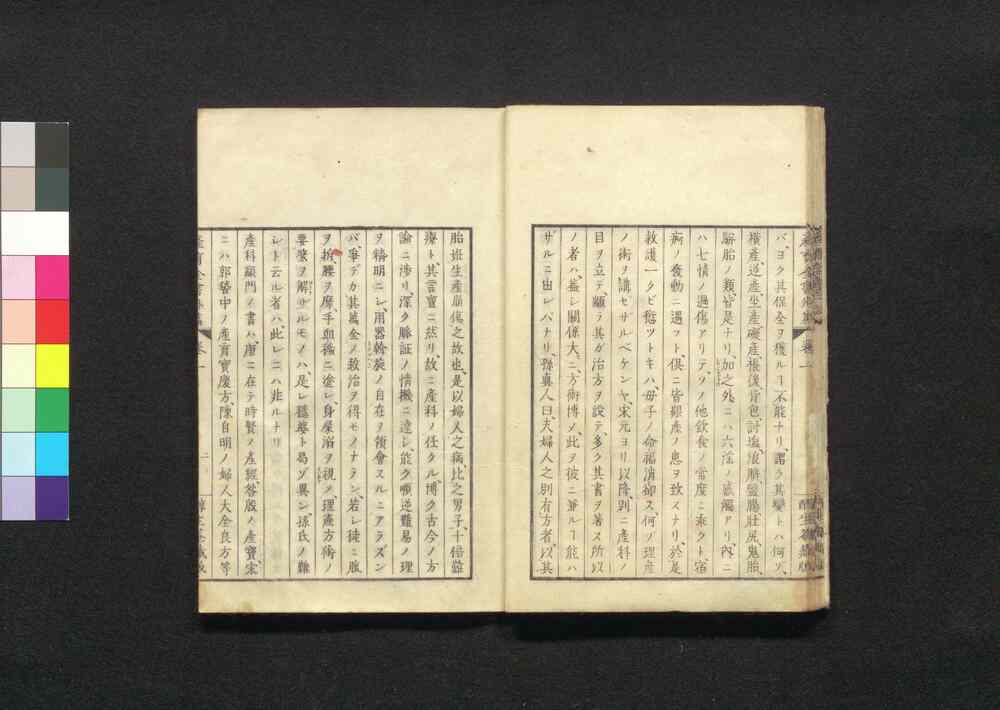 バ、ヨク其保全ヲ獲ルヿ不能ナリ、謂ラ其變トハ何ゾ、
横產、逆產、坐產、礙產、悵後、背包、討塩、浪臍、盤腸、壯尻、鬼胎、
騈胎ノ類皆是ナリ、加之外ニハ六淫ノ感觸アリ、內ニ
ハ七情ノ過傷アリテ、ソノ他飲食ノ常度ニ乖クト、宿
痾ノ發動ニ遇フト、俱ニ皆艱產ノ患ヲ致スナリ、於是
救護一タビ愆ツトキハ、母子ノ命福消卻ス、何ゾ理產
ノ術ヲ講セサルベケンヤ、宋元ヨリ以降、別ニ產科ノ
目ヲ立テ、顓ラ其ガ治方ヲ說テ、多ク其書ヲ著ス所以
ノ者ハ、蓋シ關係大ニ、方術博ノ、此ヲ彼ニ兼ルヿ能ハ
ザルニ由レバナリ、孫眞人曰、夫婦人之別有方者、以其
胎姙生產崩傷之故也、是以婦人之病、比之男子、十倍難
療ト、其言寔ニ然リ、故ニ產科ノ任タル、博ク古今ノ方
論ニ涉リ、深ク脉証ノ情機ニ達シ、能ク順逆難易ノ理
ヲ精明ニシ、用器斡旋ノ自在ヲ領會スルニアラズン
バ、爭デカ其萬全ノ救治ヲ得モノナラン、若シ徒ニ脹
ヲ按、腰ヲ摩、手血穢ニ塗レ、身屎溺ヲ視ノ、理產方術ノ
要㪽ヲ解サルモノハ、是レ穩婆ト曷ゾ異ン、孫氏ノ難
シト云ル者ハ、此レニハ非ルナリ
產科顓門ノ書ハ、唐ニ在テ時賢ノ產經、昝殷ノ產寶、宋
ニハ郭稽中ノ產育寶慶方、陳自明ノ婦人大全良方等
產育全書外篇
卷一
二